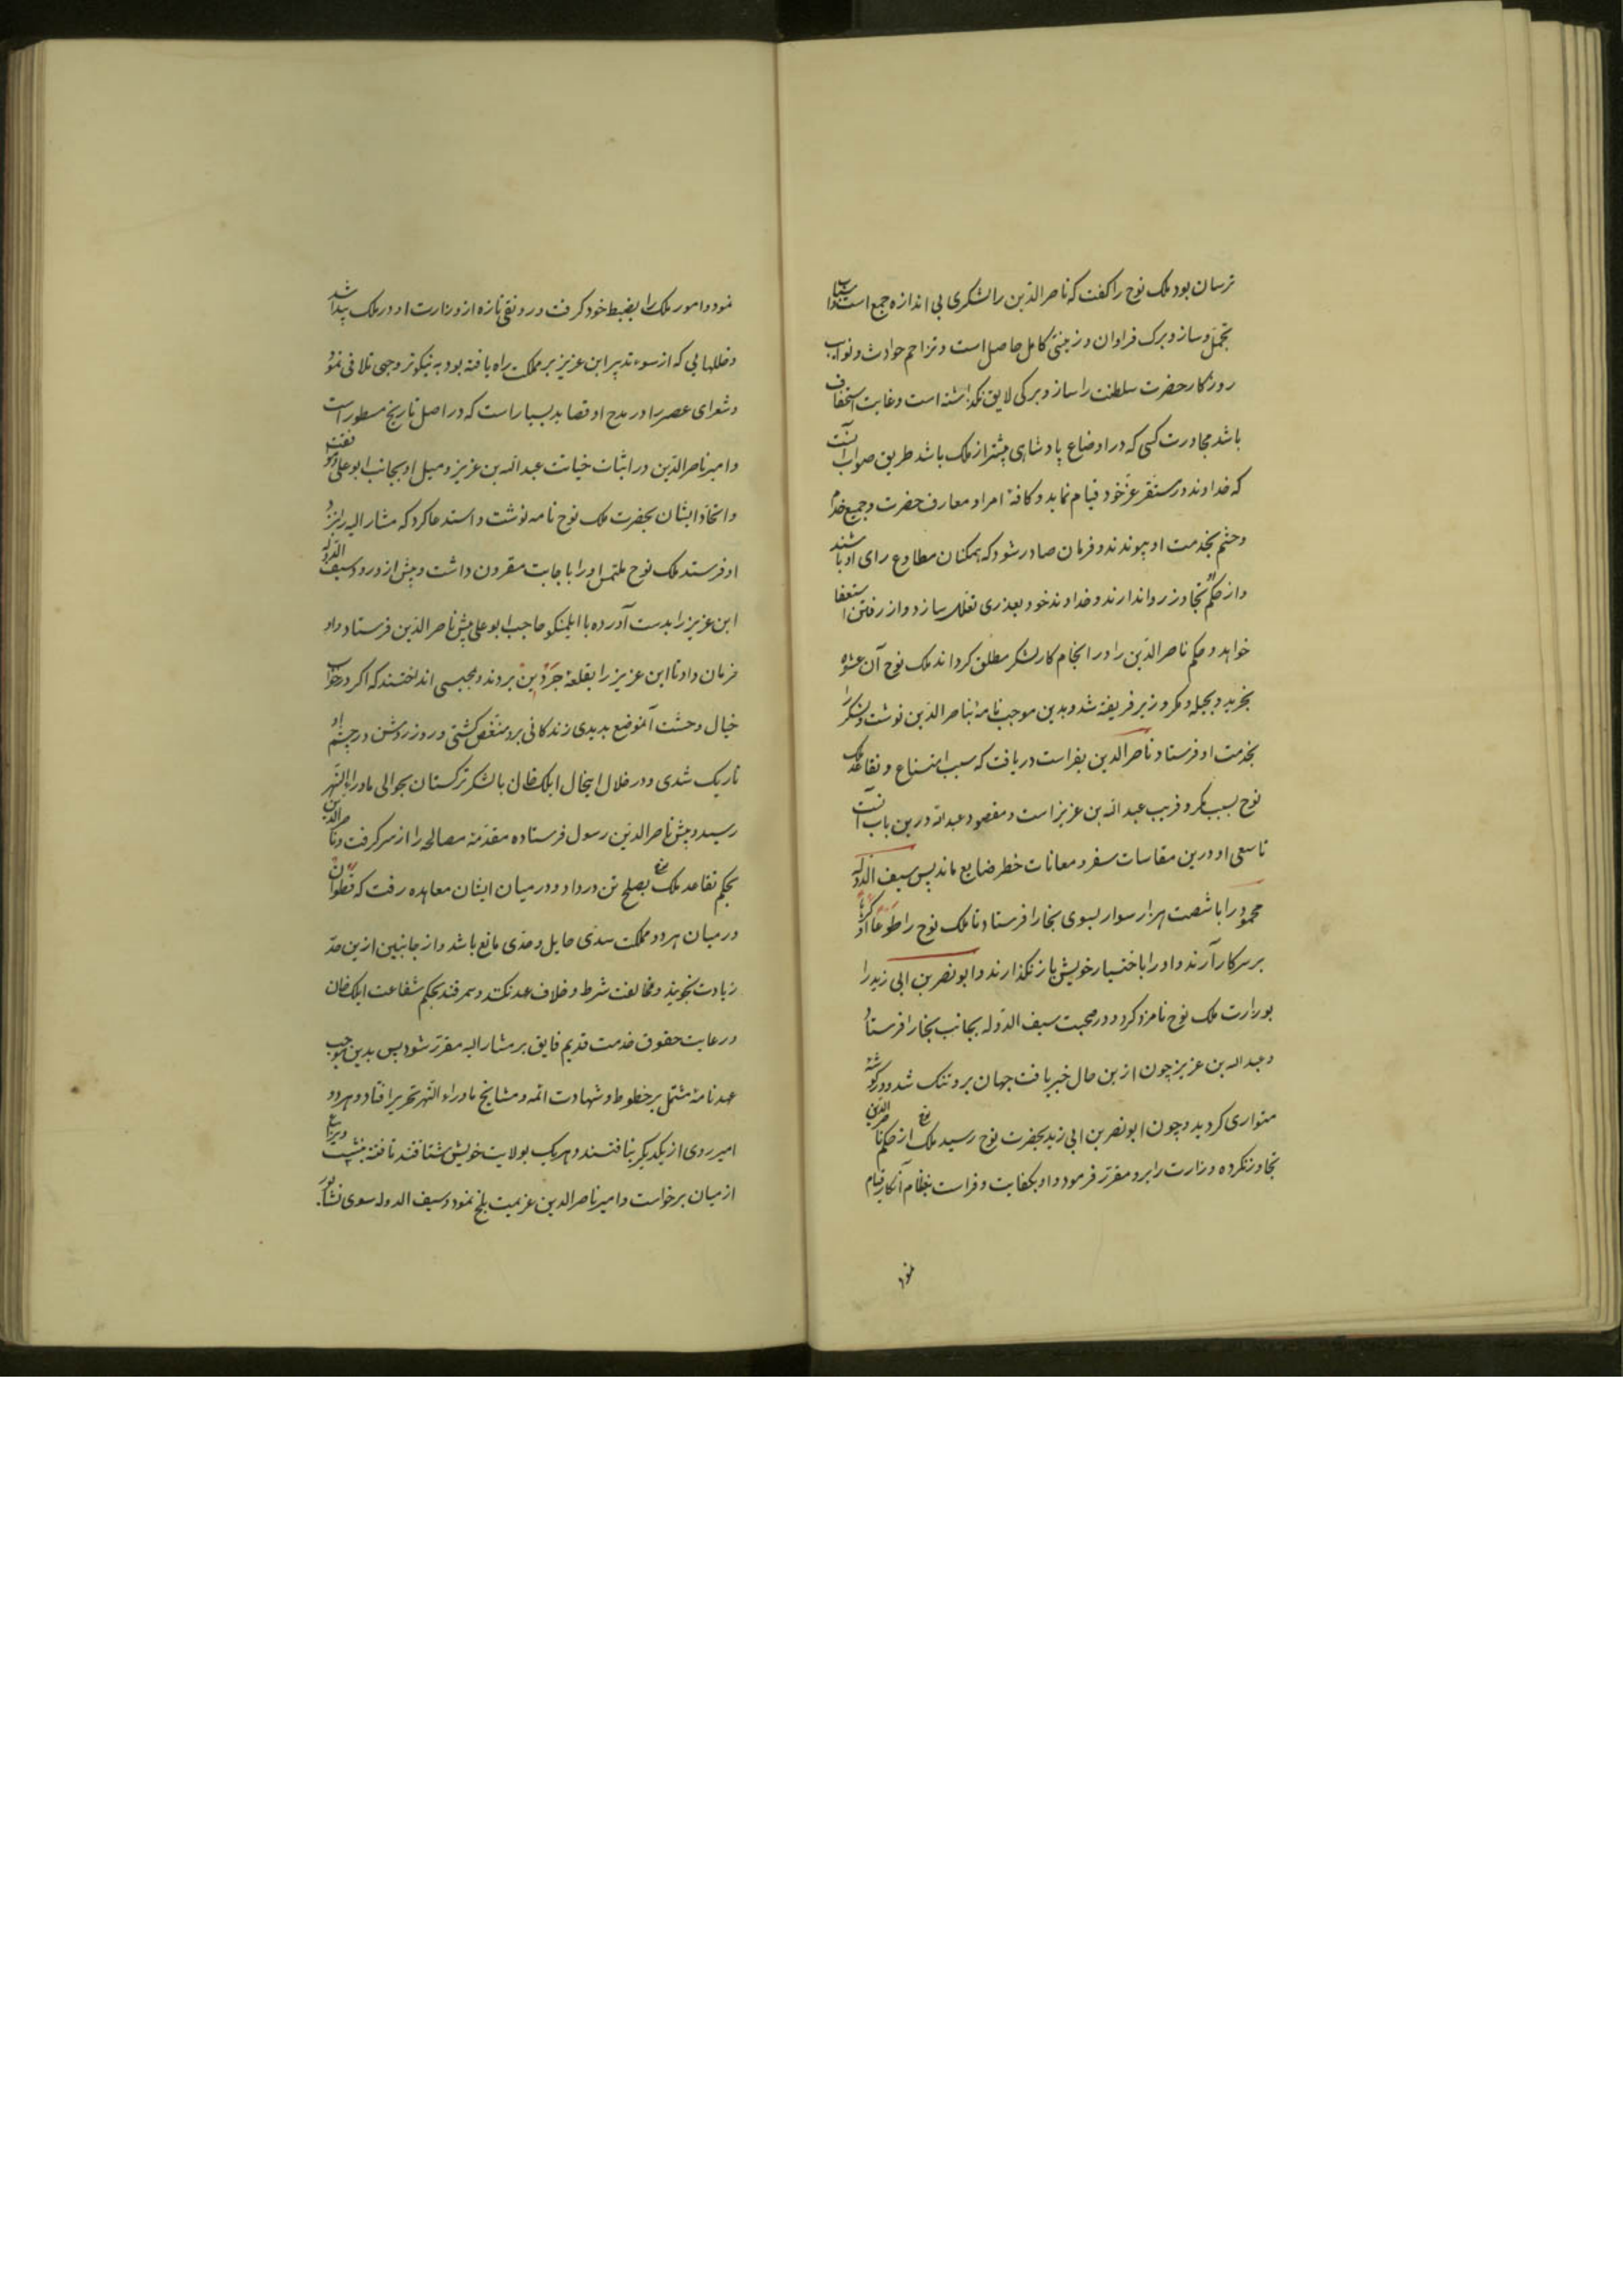 ترسان بود ملک نوح را کفت که ناصر الدّین را لشکری بی اندازه جمع است و او را
تجمّل و ساز و برک فراوان و زینتی کامل حاصل است و تزاحم حوادث و نوایب
روزکار حضرت سلطنت را ساز و برکی لایق نکذاشته است و غایت استخفاف
باشد مجاورت کسی که در اوضاع پادشاهی بیشتر از ملک باشد طریق صواب آنست
که خداوند در مستقر عزّ خود قیام نماید و کافهٔ امرا و معارف حضرت و جمیع خدم
و حشم بخدمت او پیوندند و فرمان صادر شود که همکنان مطاوع رای او باشند
و از حکم تجاوز روا ندارند و خداوند خود بعذری تعلّل سازد و از رفتن استعفا
خواهد و حکم ناصر الدّین را در انجام کار لشکر مطلق کرداند ملک نوح آن عشوه
بخرید و بحیله و مکر وزیر فریفته شد و بدین موجب نامهٔ بناصر الدّین نوشت و لشکر را
بخدمت او فرستاد ناصر الدین بفراست دریافت که سبب امتناع و تقاعد ملک
نوح بسبب مکر و فریب عبد الله بن عزیز است و مقصود عبد الله درین باب آنست
تا سعی او درین مقاسات سفر و معانات خطر ضایع ماند پس سیف الدّوله
محمود را با شصت هزار سوار بسوی بخارا فرستاد تا ملک نوح را طَوعاً او کَرهاً
بر سر کار آرند و او را با اختیار خویش باز نکذارند و ابو نصر بن ابی زید را
بوزارت ملک نوح نامزد کرد و در صحبت سیف الدّوله بجانب بخارا فرستاد
و عبد الله بن عزیز چون ازین حال خبر یافت جهان برو تنک شد و در کوشهٔ
متواری کردید و چون ابو نصر بن ابی زید بحضرت نوح رسید ملک نوح از حکم ناصر الدّین
تجاوز نکرده وزارت را برو مقرّر فرمود و او بکفایت و فراست بنظام آنکار قیام
نمود
نمود و امور ملک را بضبط خود کرفت و رونقی تازه از وزارت او در ملک پیدا شد
و خللهایی که از سوء تدبیر ابن عزیز بر مملکت راه یافته بود به نیکوتر وجهی تلافی نمود
و شعرای عصر را در مدح او قصاید بسیار است که در اصل تاریخ مسطور است
و امیر ناصر الدّین در اثبات خیانت عبد الله بن عزیز و میل او بجانب ابو علی
و اتّحاد ایشان بحضرت ملک نوح نامه نوشت و استدعا کرد که مشار الیه را نزد
او فرستد ملک نوح ملتمس او را باجابت مقرون داشت و پیش از ورود سیف الدّوله
ابن عزیز را بدست آورده با ایلمنکو حاجب ابو علی پیش ناصر الدّین فرستاد و او
فرمان داد تا ابن عزیز را بقلعهٔ جَردین بردند و بمحبسی انداختند که اکر در خواب
خیال وحشت آنموضع بدیدی زندکانی برو منغّص کشتی و روز روشن در چشم او
تاریک شدی و در خلال اینحال ایلک خان با لشکر ترکستان بحوالی ماوراء النّهر
رسید و پیش ناصر الدّین رسول فرستاده مقدّمهٔ مصالحه را از سر کرفت و ناصر الدین
بحکم تقاعد ملک نوح بصلح تن در داد و در میان ایشان معاهده رفت که قطوان
در میان هر دو مملکت سدّی حایل و حدّی مانع باشد و از جانبین ازین حدّ
زیادت نجویند و مخالفت شرط و خلاف عهد نکنند و سمرقند بحکم شفاعت ایلک خان
و رعایت حقوق خدمت قدیم فایق بر مشار الیه مقرّر شود پس بدین موجب
عهدنامهٔ مشتمل بر خطوط و شهادت ائمه و مشایخ ماوراء النّهر تحریر افتاد و هر دو
امیر روی از یکدیکر بتافتند و هر یک بولایت خویش شتافتند
از میان برخواست و امیر ناصر الدین عزیمت بلخ نمود و سیف الدوله سوی نشابور